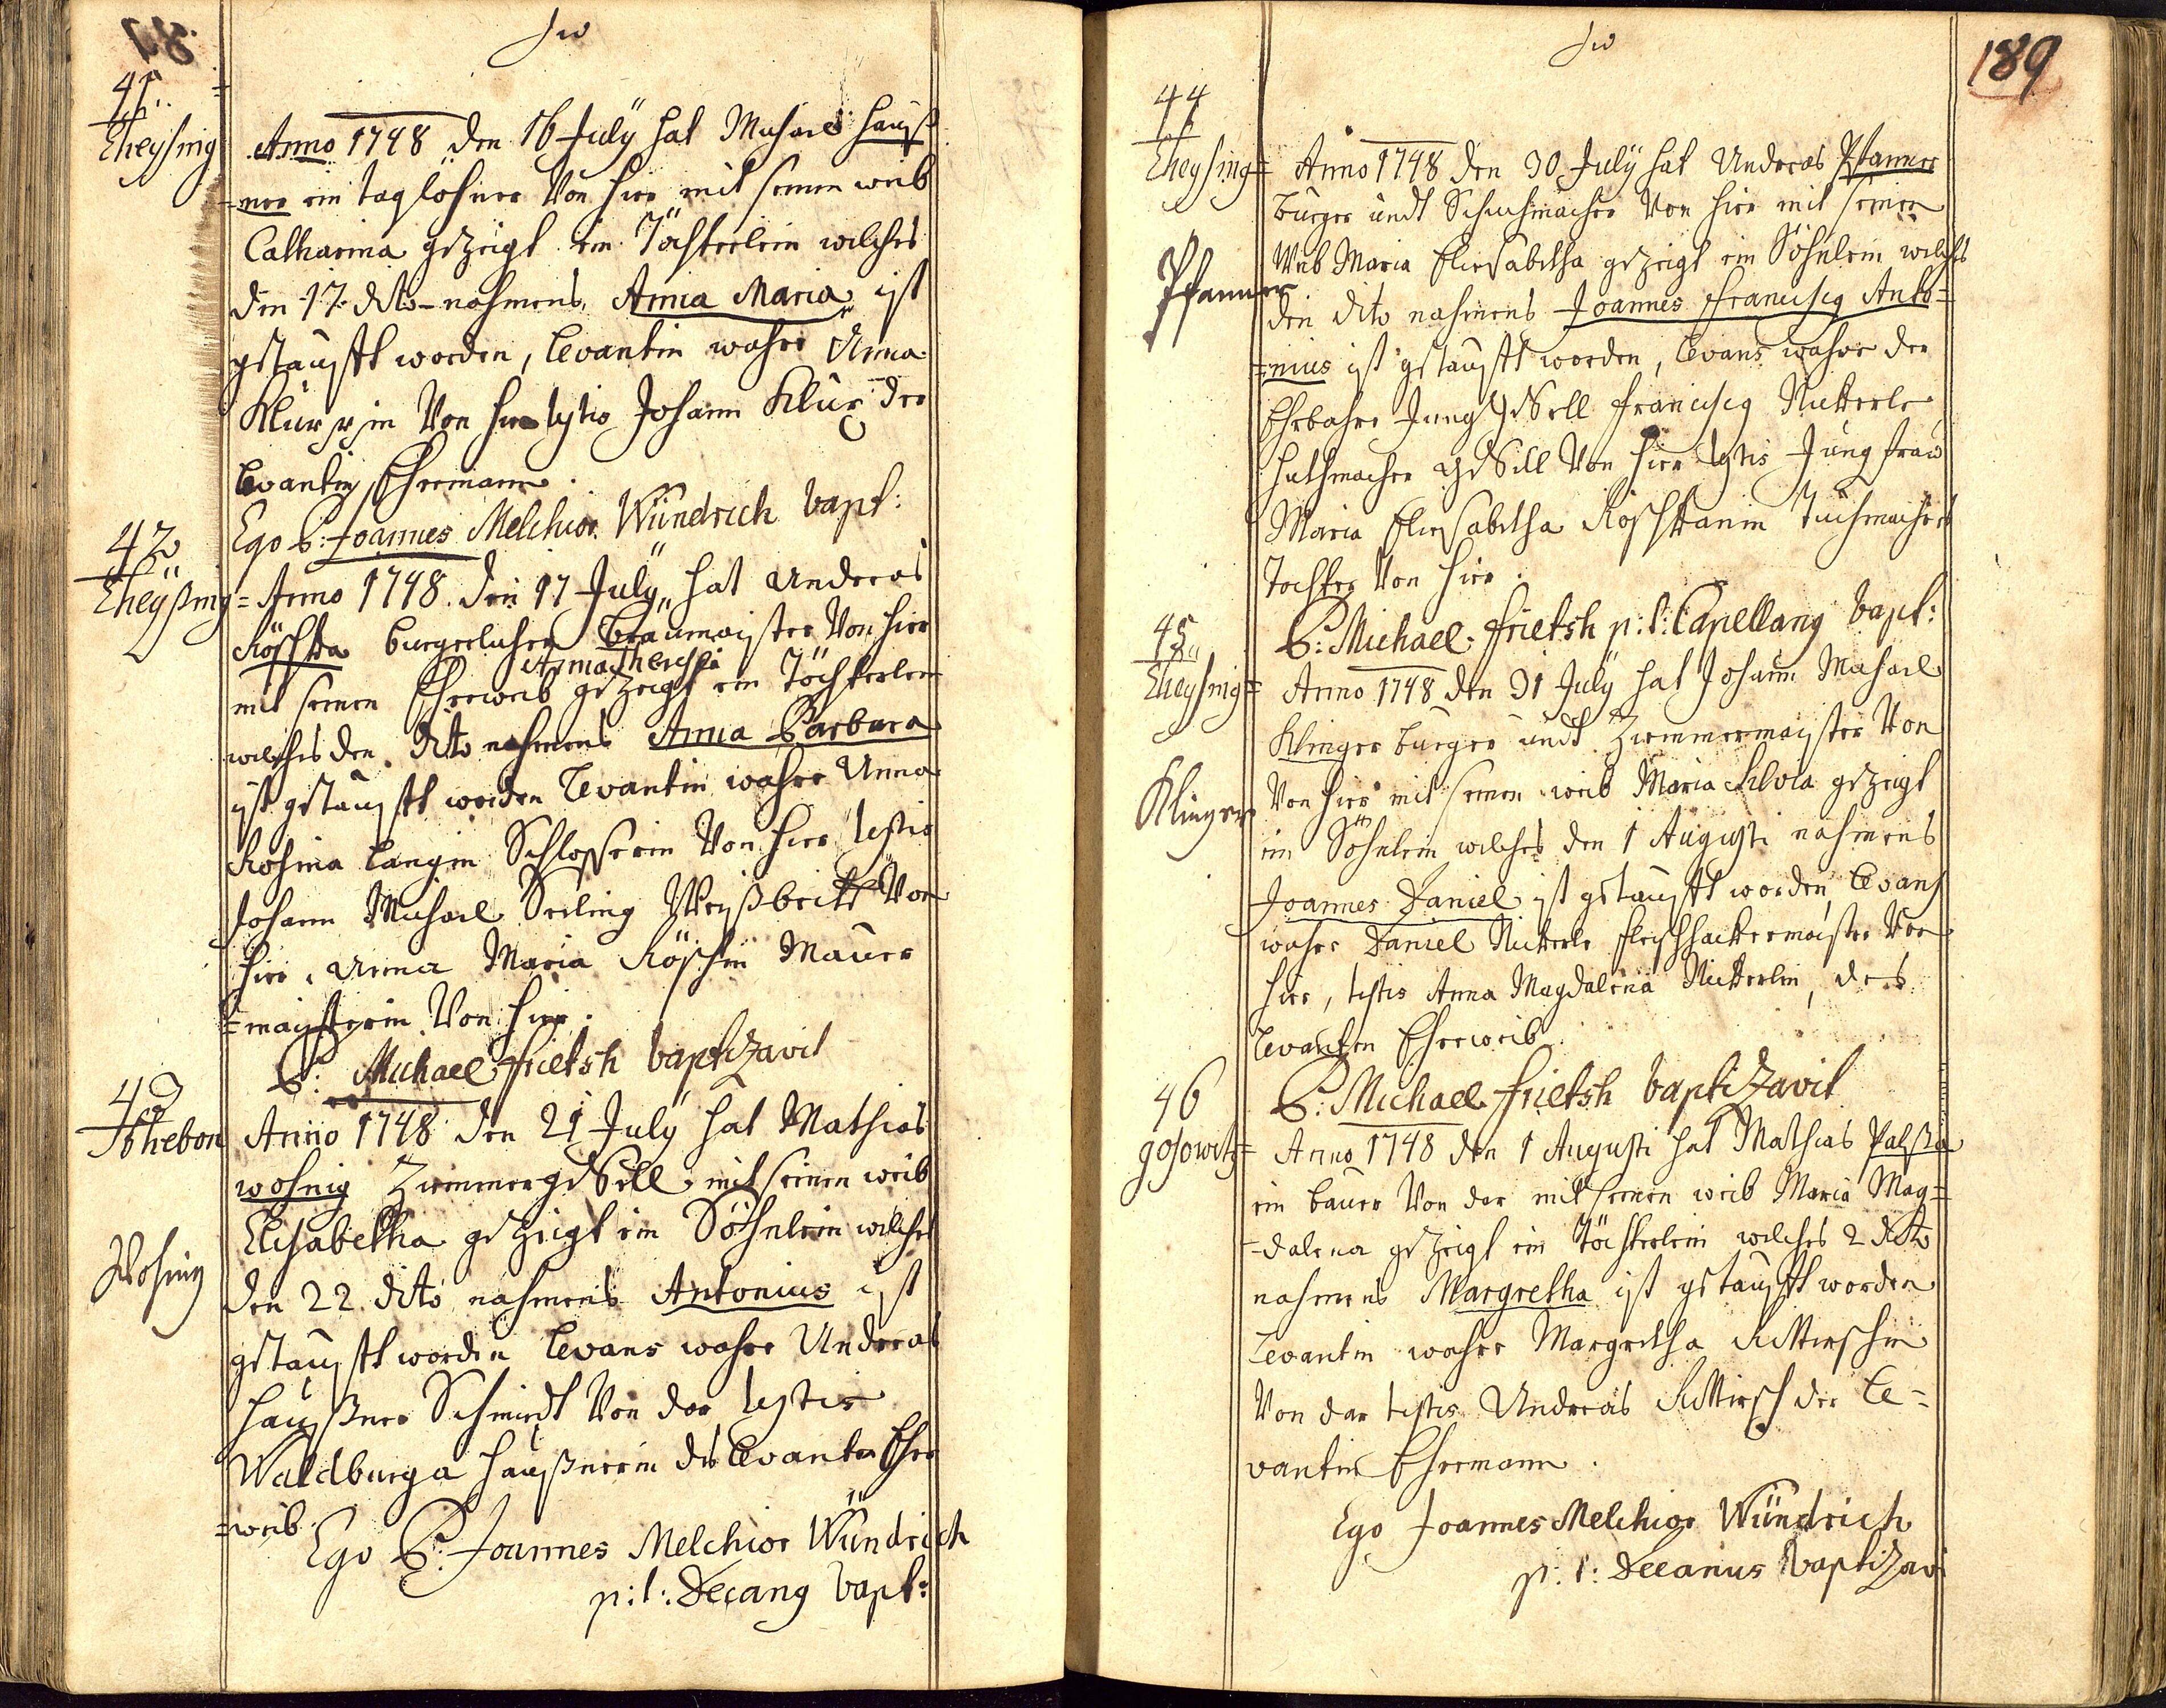 41
Theysing
Anno 1748 den 16 July hat Michael Hauß
-ner ein taglöhner Von hier mit seinem weib
Catharina gezeigt ein Töchterlein welches
den 17 dito nahmens Anna Maria ist
getaufft worden, Levantin wahre Anna
Von hier testis Johann der
Levantin Ehemann.
Ego P: Joannes Melchior Wündrich bapt:
42
Theyßing=
Anno 1748. den 17 July hat Andreas
Röschka burgerlicher Braumayster Von hier
Anna Theresia
mit seinem Eheweib gezeigt ein Töchterlein
welches den dito nahmens Anna Barbara
ist getaufft worden Levantin wahre Anna
Rosina Langin Schlosserin Von hier testis
Johann Michael Seiling Von
hier, Anna Maria Röschin Maurer
=maysterin Von hier.
P: Michael Frietsh baptizavit
43
Anno 1748 den 21 July hat Mathias
Wohnig Zimmergesell mit seinem weib
Elisabetha gezeigt ein Söhnlein welches
Wohnig
den 22 dito nahmens Antonius ist
getaufft worden Levans wahre Andreas
Haußner Schmidt Von dar, testis
Waldburga Haußnerin des Levanten Ehe
=weib.
Ego P: Joannes Melchior Wündrich
p:t: Decang bapt:
189
44
Theysing=
Anno 1748 den 30 July hat Andreas Pfanner
burger undt Schuhmacher Von hier mit seinem
Weib Maria Eliesabetha gezeigt ein Söhnlein welches
Pfanner
den dito nahmens Joannes Franciscg Anto=
=nius ist getaufft worden, Levans wahre der
Ehrbahre Junggesell Franciscg Nickerle
Huthmacher gesell Von hier testis Jungfrau
Maria Eliesabetha Tuchmachers
Tochter Von hier.
P: Michael Frietsh p:t: Capellang bapt:
45
Theysing=
Anno 1748 den 31 July hat Johann Michael
Klinger burger undt Zimmermayster Von
Von hier mit seinem weib Maria gezeigt
Klinger
ein Söhnlein welches den 1 Augusti nahmens
Joannes Daniel ist getaufft worden, Levans
wahre Daniel Nickerle fleischhackermaister Von
hier, testis Anna Magdalena Nickerlin, des
Levanten Eheweib.
P: Michael Frietsh baptizavit
46
gosowitz=
Anno 1748 den 1 Augusti hat Mathias
ein bauer Von dar mit seinem weib Maria Mag=
-dalena gezeigt ein Töchterlein welches 2 dito
nahmens Margretha ist getaufft worden
Levantin wahre Margretha
Von dar testis Andreas der Le=
vantin Ehemann.
Ego Joannes Melchior Wündrich
p:t: Decanus baptizavi